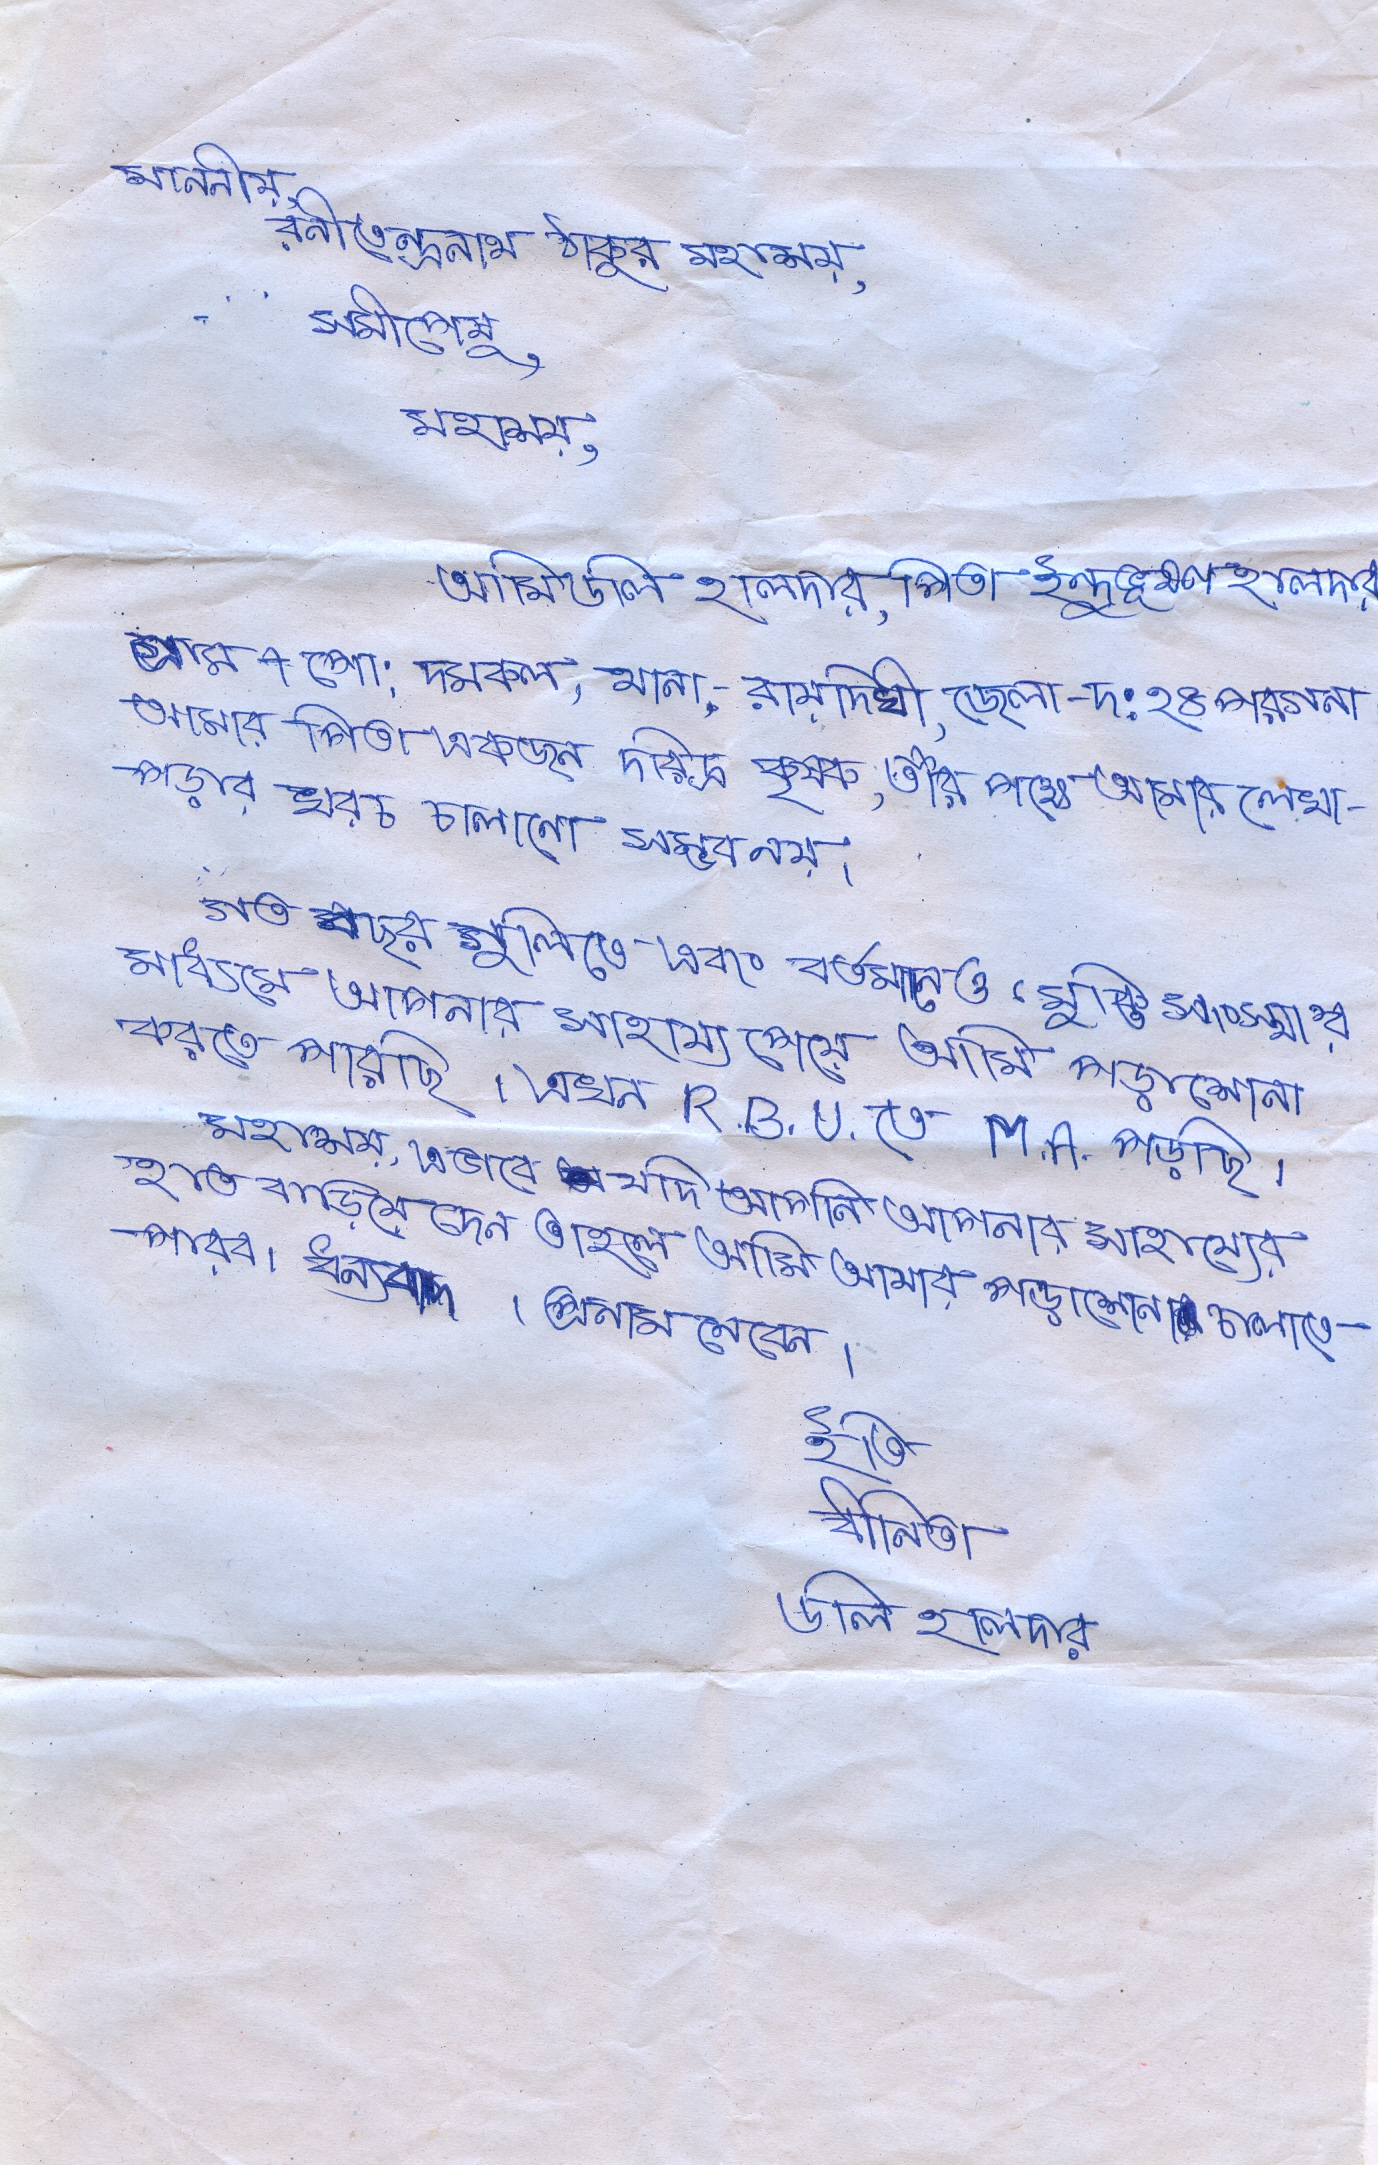 মাননীয়,
রনীতেন্দ্রনাথ ঠাকুর মহাশয়,
সমীপেষু,
মহাশয়,
আমি ডলি হালদার, পিতা ইন্দুভূষণ হালদার
গ্রাম + পো: দমকল, থানা:- রায়দিঘী, জেলা-দ: ২৪ পরগনা
আমার পিতা একজন দরিদ্র কৃষক, তাঁর পক্ষে আমার লেখা-
পড়ার খরচ চালানো সম্ভব নয়।
গত বছর গুলিতে এবং বর্তমানেও 'মুষ্টি সংস্থার
মাধ্যমে আপনার সাহায্য পেয়ে আমি পড়াশোনা
করতে পারছি। এখন R.B.U. তে M.A. পড়ছি।
মহাশয়, এভাবে যদি আপনি আপনার সাহায্যের
হাত বাড়িয়ে দেন তাহলে আমি আমার পড়াশোনা চালাতে-
পারব। ধন্যবাদ। প্রনাম নেবেন।
ইতি
বীনিতা
ডলি হালদার